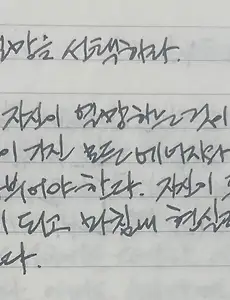 열망을 선택하라.
자신이 열망하는 것이
이 가진 모든 에너지와
부어야 한다. 자신이
이 되고 마침내 현실
다.